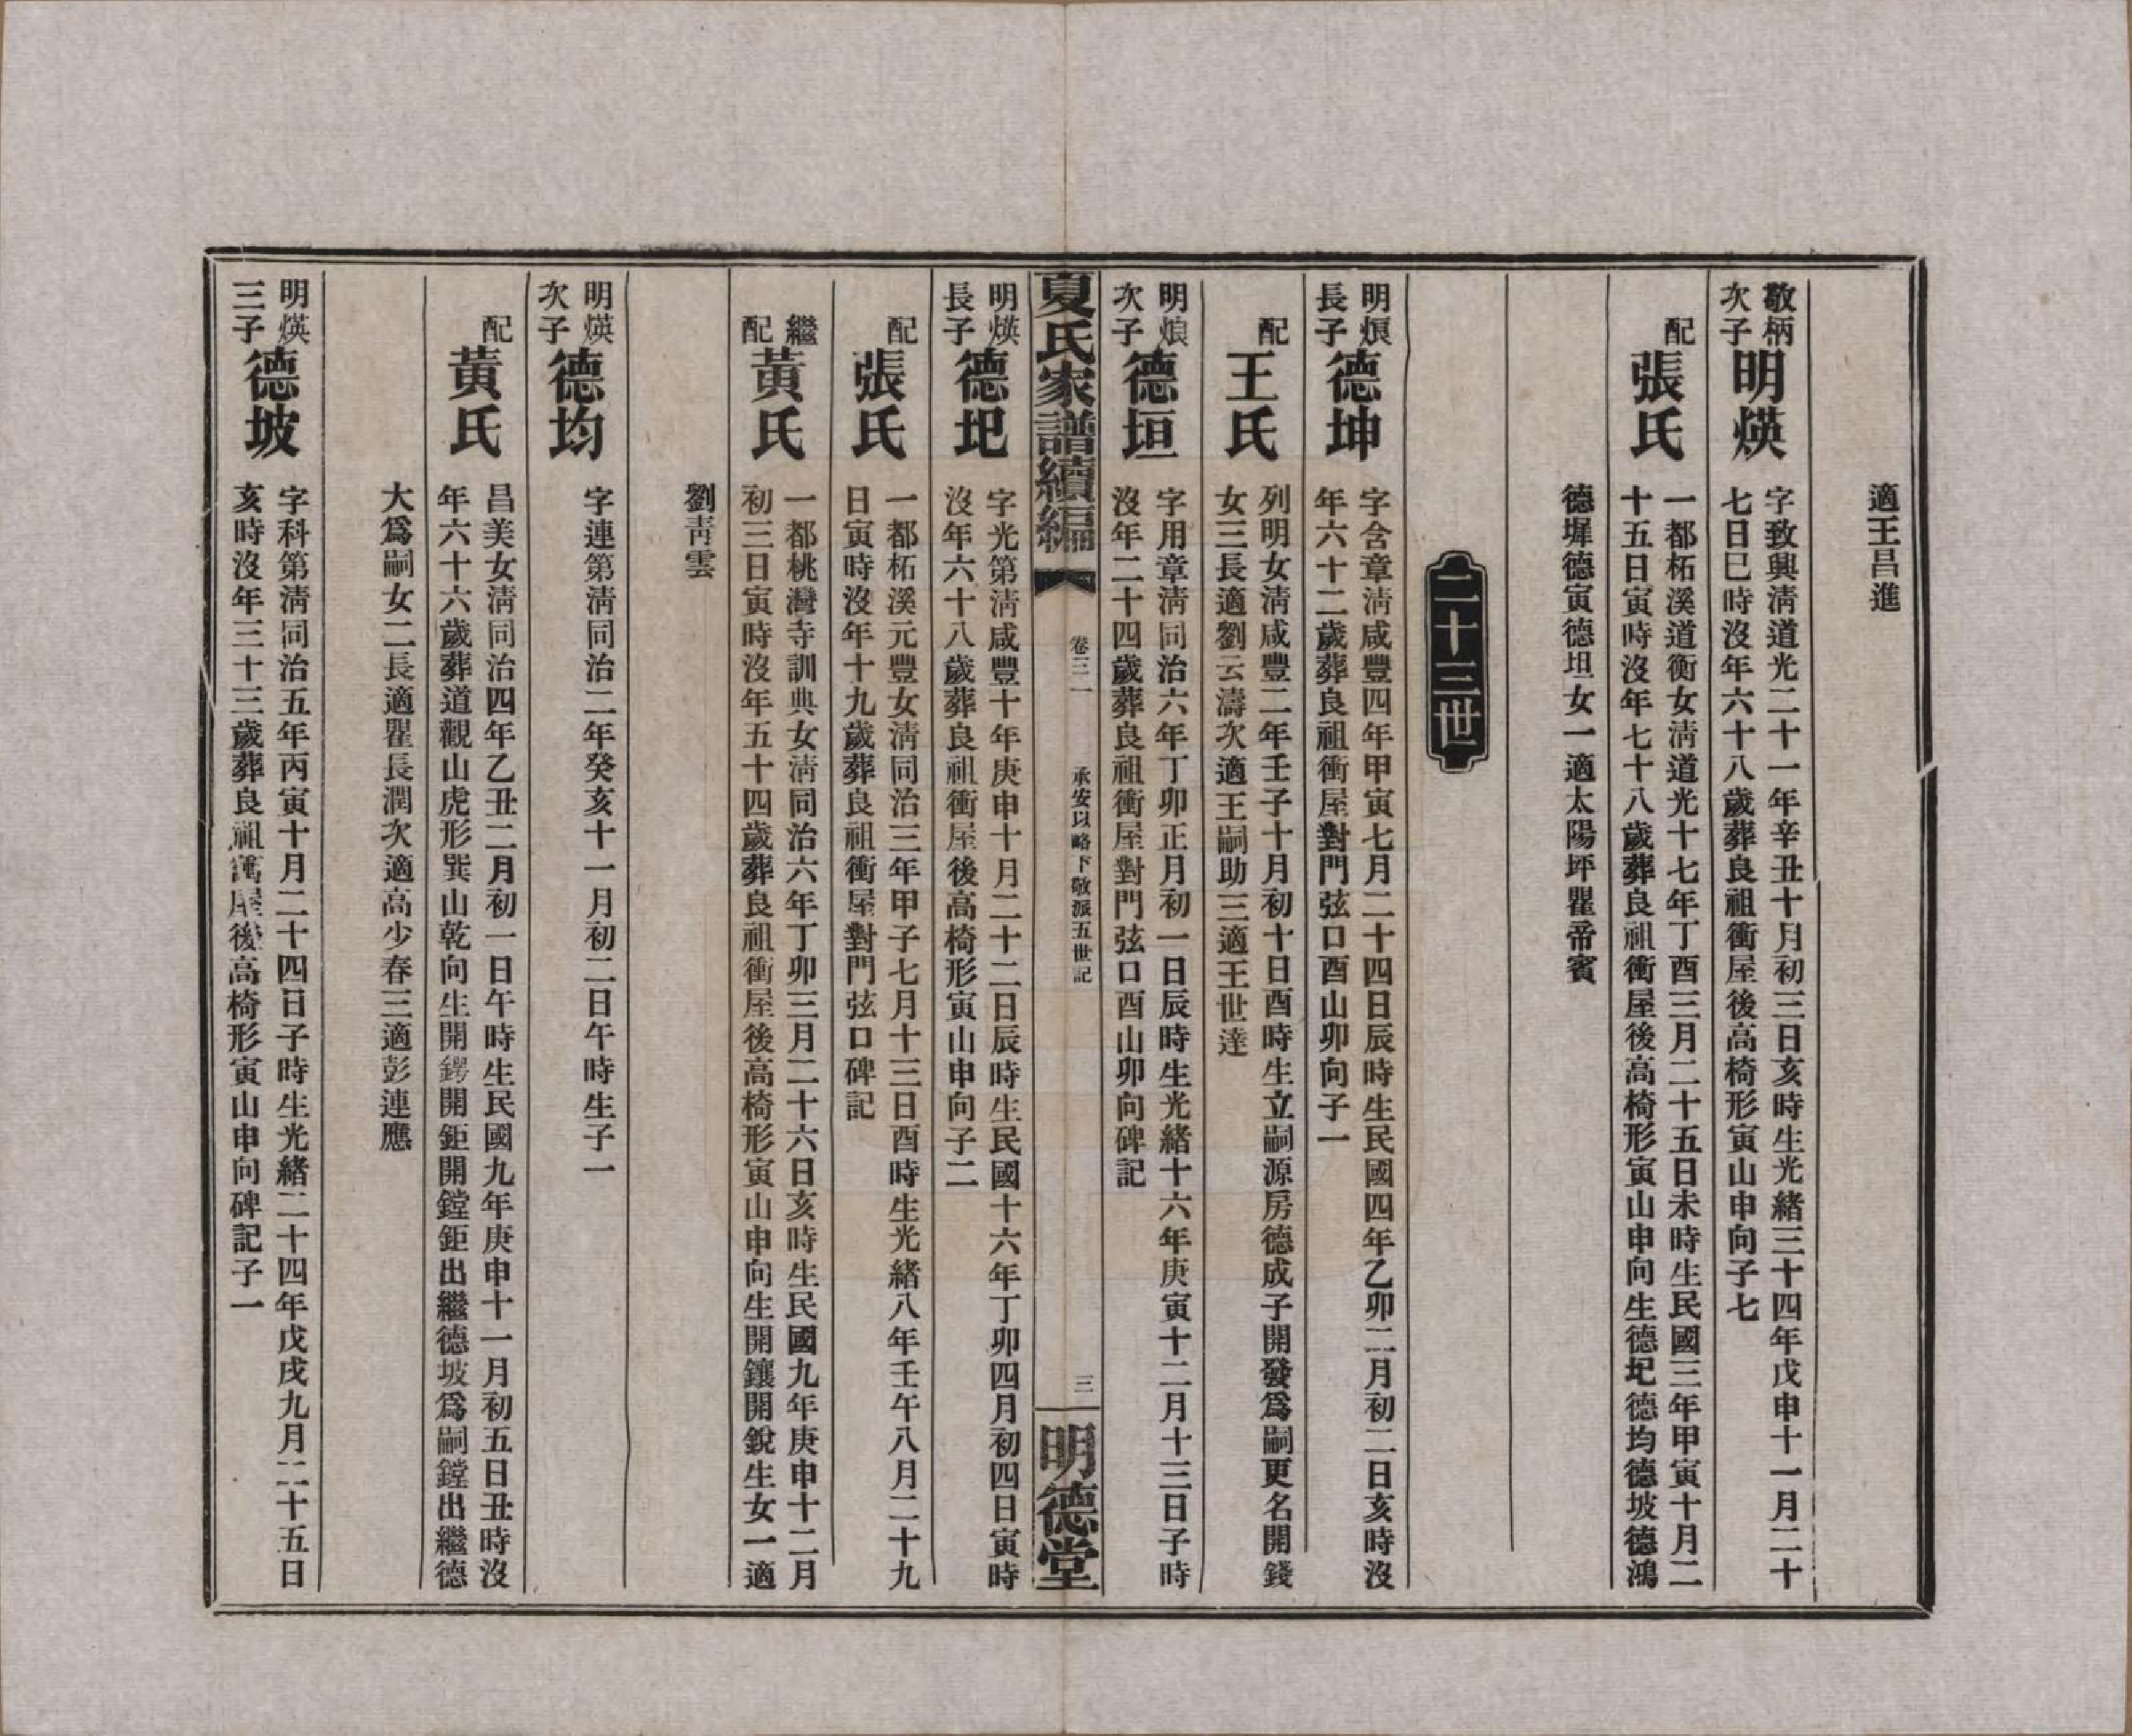 適王昌進
敬柄次子
明煐
字致興淸道光二十一年辛丑十月初三日亥時生光緒三十四年戊申十一月二十
七日巳時沒年六十八歲葬良祖衝屋後高椅形寅山申向子七
配
張氏
一都柘溪道衡女淸道光十七年丁酉三月二十五日未時生民國三年甲寅十月二
十五日寅時沒年七十八歲葬良祖衝屋後高椅形寅山申向生德圯德均德坡德鴻
德墀德寅德坦女一適太陽坪瞿帝賓
二十三世
明烺長子
德坤
字含章淸咸豐四年甲寅七月二十四日辰時生民國四年乙卯二月初二日亥時沒
年六十二歲葬良祖衝屋對門弦口酉山卯向子一
配
王氏
列明女淸咸豐二年壬子十月初十日酉時生立嗣源房德成子開發爲嗣更名開錢
女三長適劉云濤次適王嗣助三適王世達
明烺次子
德垣
字用章淸同治六年丁卯正月初一日辰時生光緒十六年庚寅十二月十三日子時
沒年二十四歲葬良祖衝屋對門弦口酉山卯向碑記
夏氏家譜續編
卷三一
承安以略下敬派五世記
三
明德堂
明煐長子
德圯
字光第淸咸豐十年庚申十月二十二日辰時生民國十六年丁卯四月初四日寅時
沒年六十八歲葬良祖衝屋後高椅形寅山申向子二
配
張氏
一都柘溪元豐女淸同治三年甲子七月十三日酉時生光緒八年壬午八月二十九
日寅時沒年十九歲葬良祖衝屋對門弦口碑記
繼配
黃氏
一都桃灣寺訓典女淸同治六年丁卯三月二十六日亥時生民國九年庚申十二月
初三日寅時沒年五十四歲葬良祖衝屋後高椅形寅山申向生開鑲開銳生女一適
劉靑雲
明煐次子
德均
字連第淸同治二年癸亥十一月初二日午時生子一
配
黃氏
昌美女淸同治四年乙丑二月初一日午時生民國九年庚申十一月初五日丑時沒
年六十六歲葬道觀山虎形巽山乾向生開鍔開鉅開鏜鉅出繼德坡爲嗣鏜出繼德
大爲嗣女二長適瞿長潤次適高少春三適彭連應
明煐三子
德坡
字科第淸同治五年丙寅十月二十四日子時生光緒二十四年戊戌九月二十五日
亥時沒年三十三歲葬良祖寯屋後高椅形寅山申向碑記子一